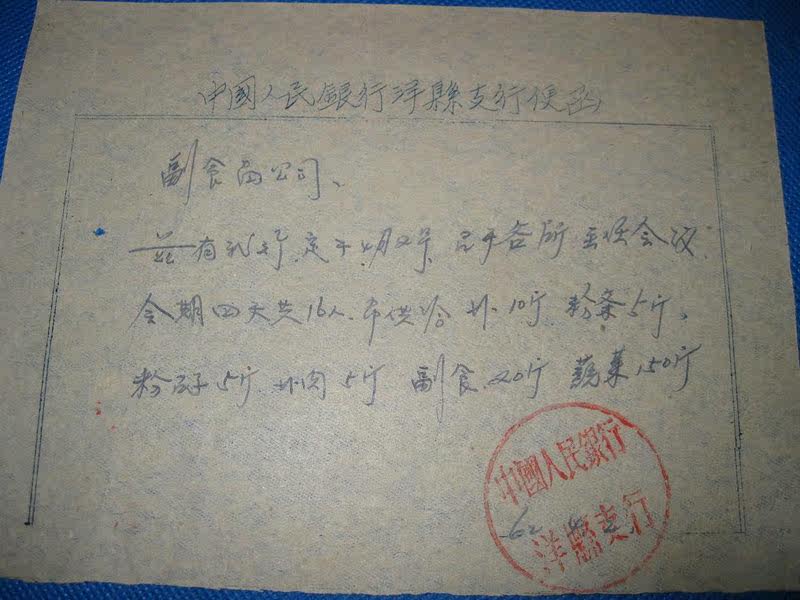 中國人民銀行洋縣支行便函
副食品公司、
兹有我行定于4月2号召开各所主任会议
会期四天共16人、市供给 10斤 粉条5斤、
粉 5斤 肉5斤 副食20斤 蔬菜150斤
中國人民銀行
62 4 2
洋縣支行